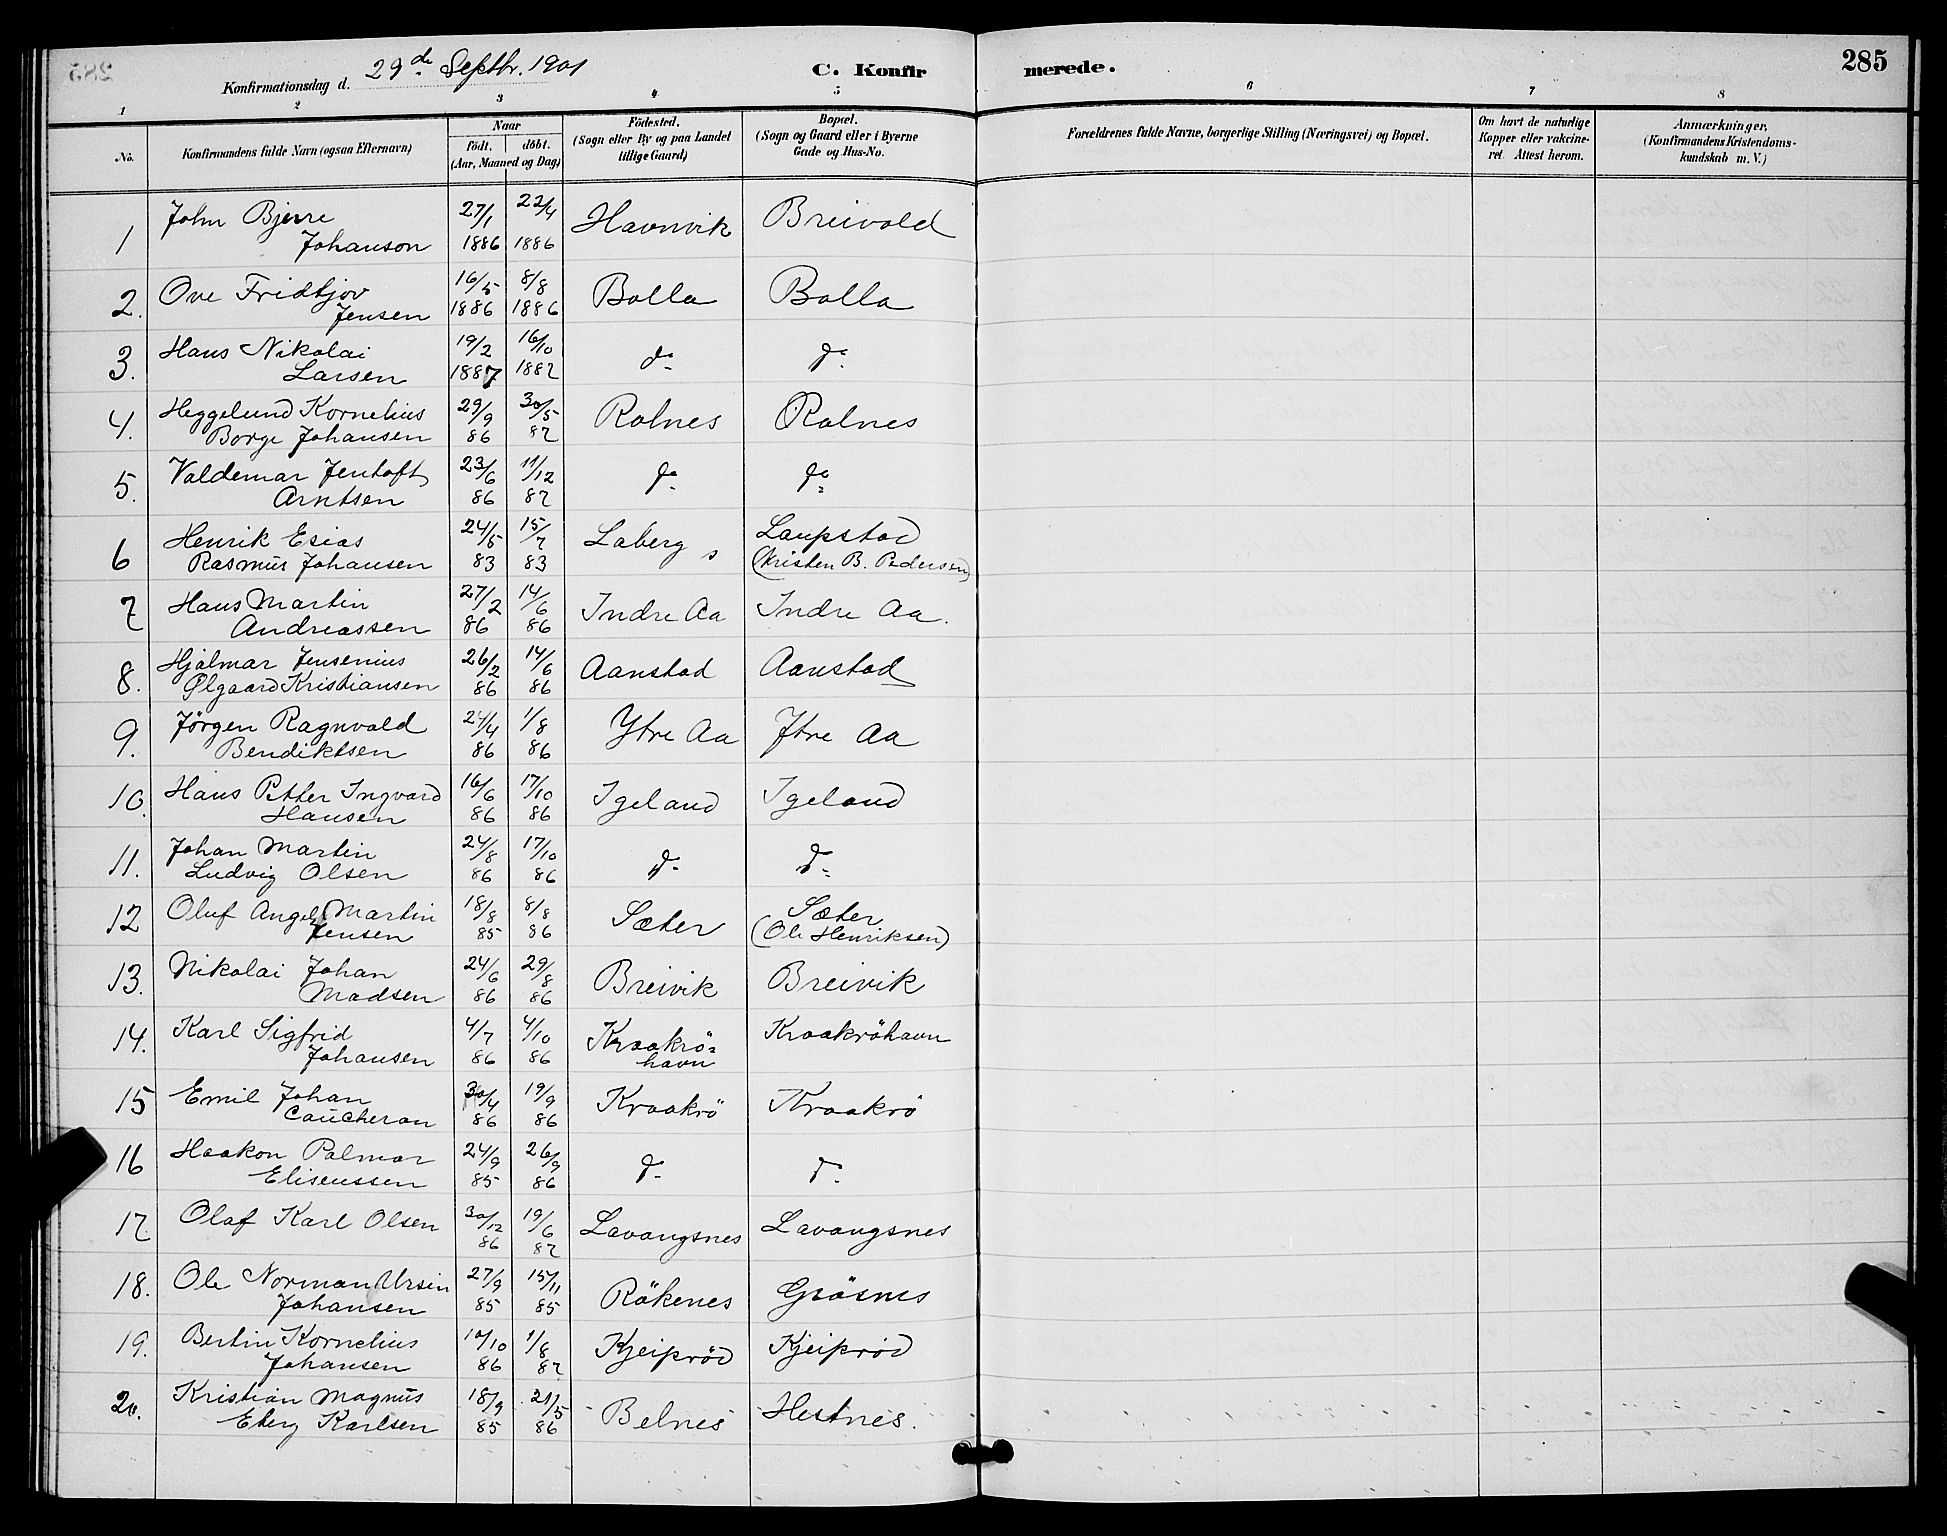 285
Konfirmationsdag d. 29de Septbr. 1901
C. Konfirmerede.
1 2 3 4 5 6 7 8
No.
Konfirmandens fulde Navn (ogsaa Efternavn)
Naar
födt. döbt.
(Aar, Maaned og Dag)
Födested.
(Sogn eller By og paa Landet
tillige Gaard)
Bopæl.
(Sogn og Gaard eller i Byerne
Gade og Hus-No.
Forældrenes fulde Navne, borgerlige Stilling (Næringsvei) og Bopæl.
Om havt de naturlige
Kopper eller vakcine-
ret Attest herom.
Anmærkninger,
(Konfirmandens Kristendoms-
kundskab m. V.)
1 John Bjerre 27/1 22/4 Havnvik Breivold
Johanson 1886 1886
2. Ove Fridtjov 16/5 8/8 Bolla Bolla
Jensen 1886 1886
3. Hans Nikolai 19/2 16/10 do do
Larsen 1887 1887
4. Heggelund Kornelius 29/9 30/5 Rolnes Rolnes
Borge Johansen 86 87
5. Valdemar Jentoft 23/6 11/12 do do
Arntsen 86 87
6 Henrik Esias 24/5 15/7 Laberg Laupstad
Rasmus Johansen 83 83 (Kristen B. Pedersen)
7 Hans Martin 27/2 14/6 Indre Aa Indre Aa.
Andreassen 86 86
8. Hjalmar Jensenius 26/2 14/6 Aanstad Aanstad
Ølgaard Kristiansen 86 86
9. Jörgen Ragnvald 24/4 1/8 Ytre Aa Ytre Aa
Bendiktsen 86 86
10. Hans Petter Ingvard 16/6 17/10 Igeland Igeland
Hansen 86 86
11. Johan Martin 24/8 17/10 do do
Ludvig Olsen 86 86
12 Oluf Angel Martin 18/8 8/8 Sæter Sæter
Jensen 85 86 (Ole Henriksen)
13. Nikolai Johan 24/6 29/8 Breivik Breivik
Madsen 86 86
14. Karl Sigfrid 4/7 4/10 Kraakrö= Kraakröhavn
Johansen 86 86 havn
15 Emil Johan 30/4 19/9 Kraakrö Kraakrö
Caucheron 86 86
16 Haakon Palmar 24/9 26/9 do do
Eliseussen 85 86
17 Olaf Karl Olsen 30/12 19/6 Lavangsnes Lavangsnes
86 87
18. Ole Norman Ursin 27/9 15/11 Rökenes Grösnes
Johansen 85 85
19. Bertin Kornelius 10/10 1/8 Kjeipröd Kjeipröd
Johansen 86 87
20. Kristian Magnus 18/9 21/5 Belnes Hestnes.
Eberg Karlsen 85 86